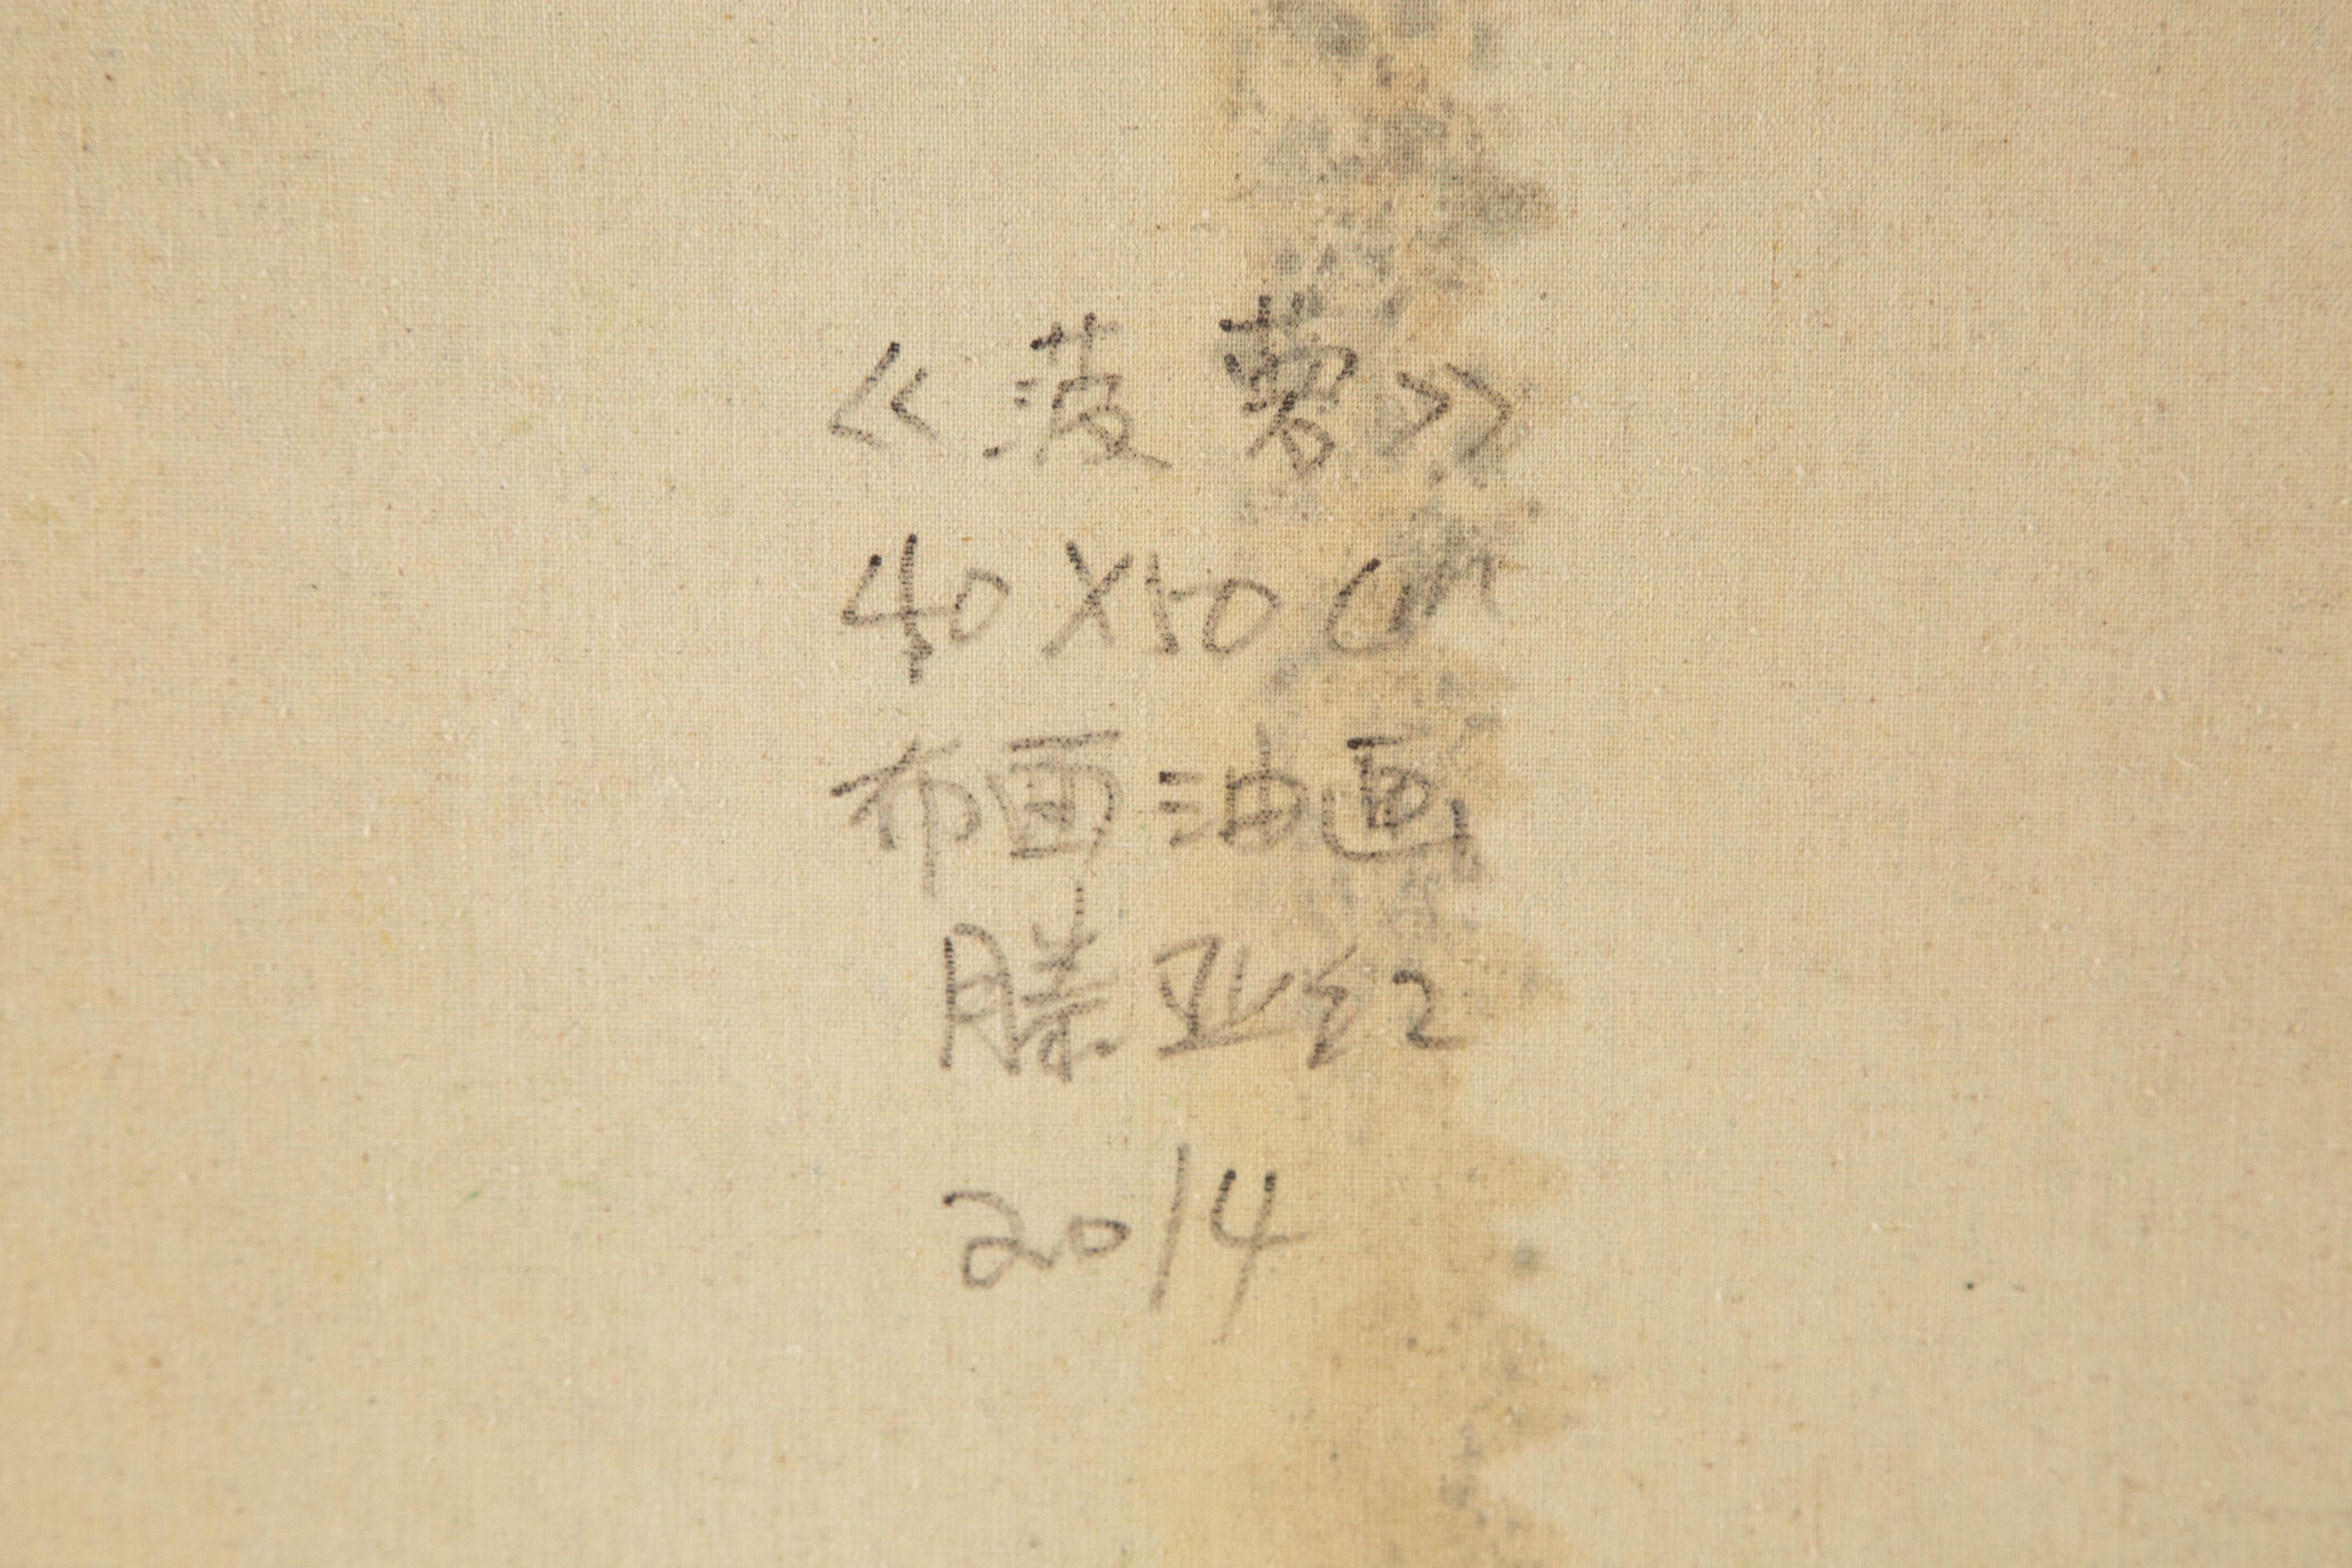 《菠萝》
40X50 cm
布面油画
滕亚红
2014